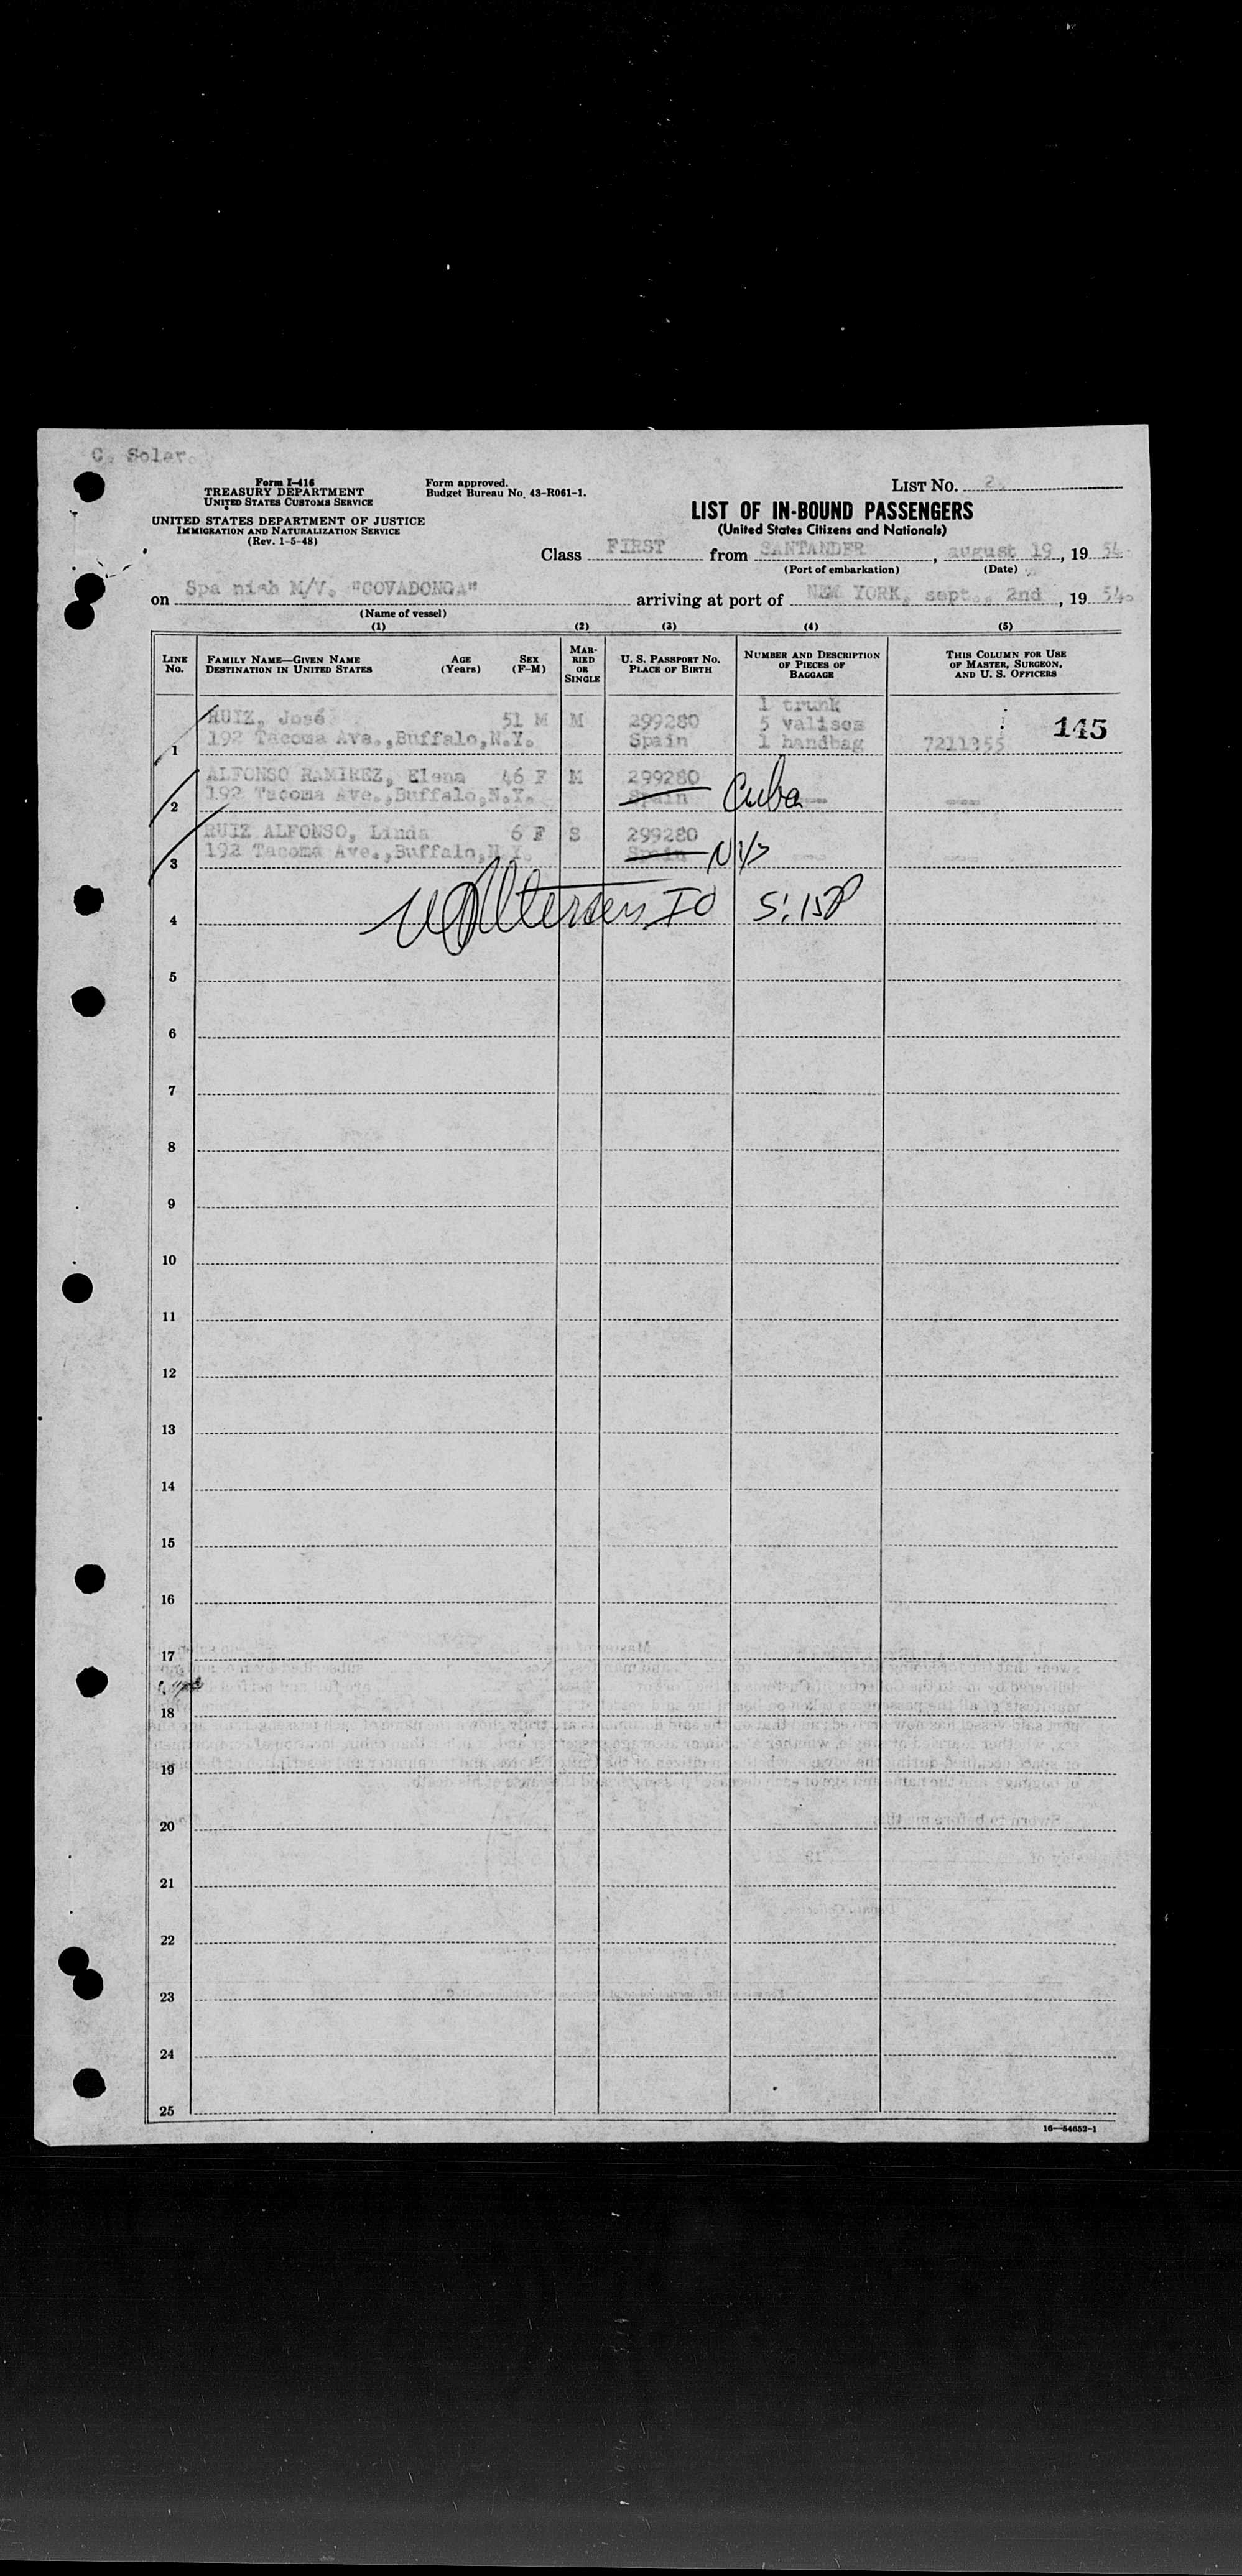 C. Soler.
Form I-416
TREASURY DEPARTMENT
UNITED STATES CUSTOMS SERVICE
UNITED STATES DEPARTMENT OF JUSTICE
IMMIGRATION AND NATURALIZATION SERVICE
(Rev. 1-5-48)
Form approved.
Budget Bureau No. 43-R061-1.
LIST NO. 2
LIST OF IN-BOUND PASSENGERS
(United States Citizens and Nationals)
Class FIRST from SANTANDER, august 19, 19 54.
(Port of embarkation) (Date)
on Spa nish M/V. "COVADONGA" arriving at port of NEW YORK, sept., 2nd, 19 54.
(Name of vessel)
(1) (2) (3) (4) (5)
LINE NO. FAMILY NAME—GIVEN NAME DESTINATION IN UNITED STATES AGE (Years) SEX (F-M) MARRIED OR SINGLE U. S. PASSPORT NO. PLACE OF BIRTH NUMBER AND DESCRIPTION OF PIECES OF BAGGAGE THIS COLUMN FOR USE OF MASTER, SURGEON, AND U. S. OFFICERS
1 trunk
RUIZ, José 51 M M 299280 5 valises 145
1 192 Tacoma Ave.,Buffalo,N.Y. Spain 1 handbag 7211355
ALFONSO RAMIREZ, Elena 46 F M 299280
2 192 Tacoma Ave.,Buffalo,N.Y. Spain Cuba
RUIZ ALFONSO, Linda 6 F S 299280
3 192 Tacoma Ave.,Buffalo,N.Y. Spain
4
5
6
7
8
9
10
11
12
13
14
15
16
17
18
19
20
21
22
23
24
25
16—54652-1